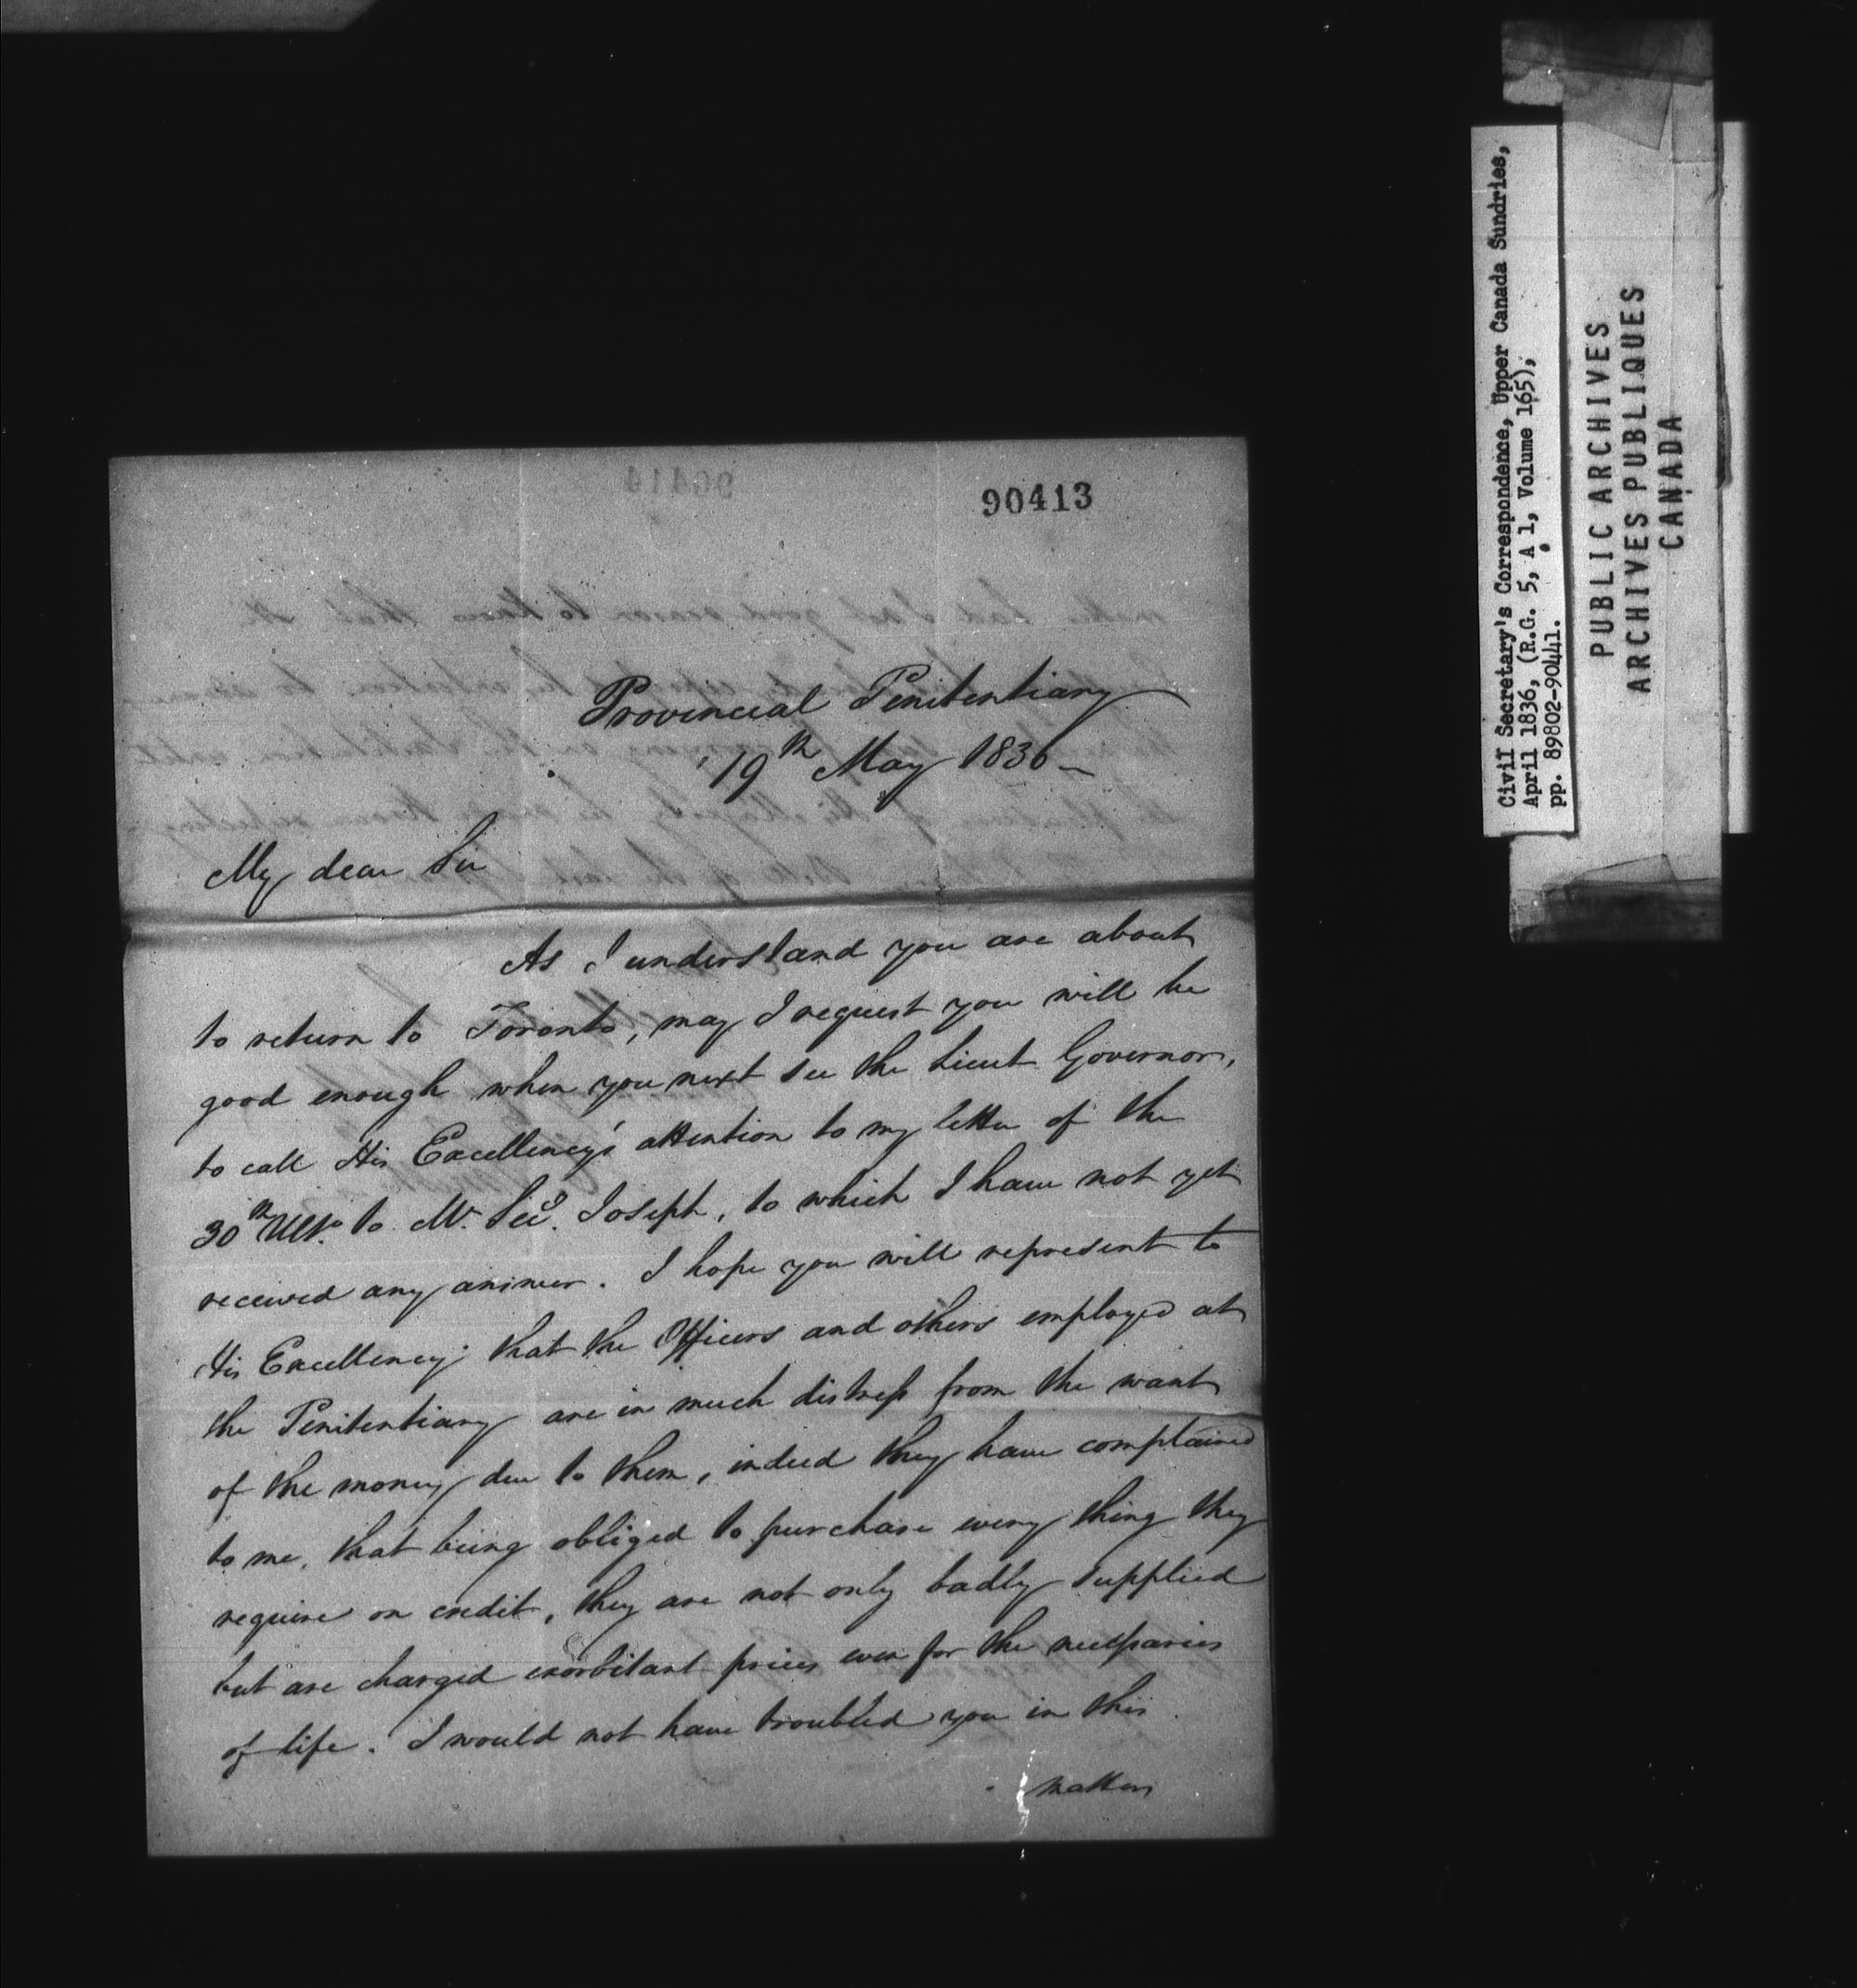 90413
Provincial Penitentiary
19th May 1836 –
My dear Sir
As I understand you are about
to return to Toronto, may I request you will be
good enough when you next see the Lieut Governor,
to call His Excellency's attention to my letter of the
30th Ulto. to Mr. Secy. Joseph, to which I have not yet
received any answer. I hope you will represent to
His Excellency; that the Officers and others employed at
the Penitentiary are in much distress from the want
of the money due to them, indeed they have complained
to me, that being obliged to purchase every thing they
require on credit, they are not only badly supplied
but are charged exorbitant prices even for the necessaries
of life. I would not have troubled you in this
matter
Civil Secretary's Correspondence, Upper Canada Sundries,
April 1836, (R.G. 5, A 1, Volume 165),
pp. 89802-90441.
PUBLIC ARCHIVES
ARCHIVES PUBLIQUES
CANADA